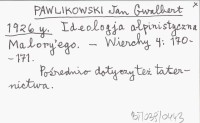 PAWLIKOWSKI Jan Gwalbert
1926 y. Ideologja alpinistyczna
Malory'ego. – Wierchy 4: 170-
-171.
Pośrednio dotyczy też tater-
nictwa.